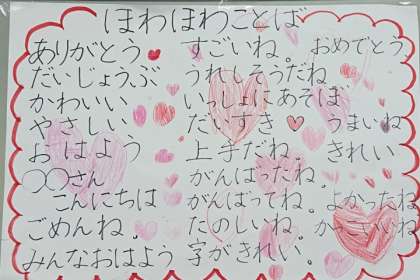 ほわほわことば
ありがとう
だいじょうぶ
かわいい
やさしい
おはよう
〇〇さん
こんにちは
ごめんね。
みんなおはよう
すごいね。
うれしそうだね
いっしょにあそぼ
だいすき
上手だね。
がんばったね。
がんばってね。
たのしいね。
字がきれい。
おめでとう
うまいね
きれい
よかったね
かっこいいね